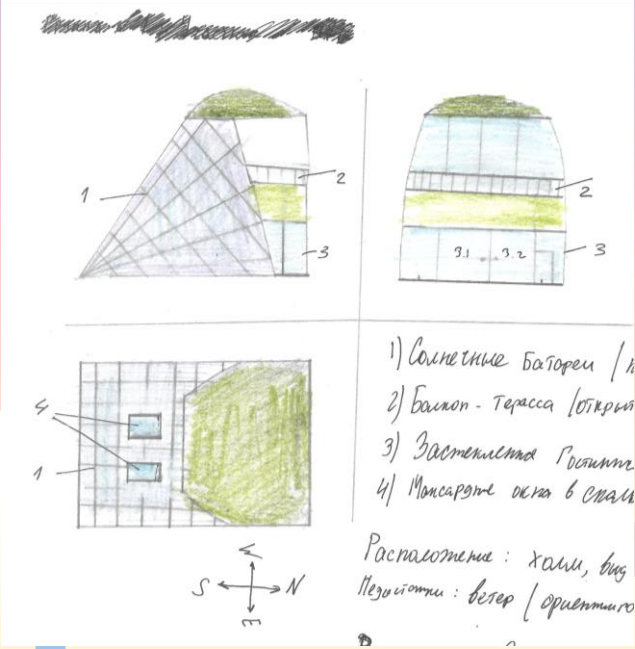 1
2
3
2
3.1
3.2
3
4
1
W
S
N
E
1) Солнечные батареи /
2) Балкон - Терасса /открыт
3) Застекленна Гостинн
4) Мансардне окна в спаль
Расположение: холм, вид
Недостатки: ветер /ориентиро